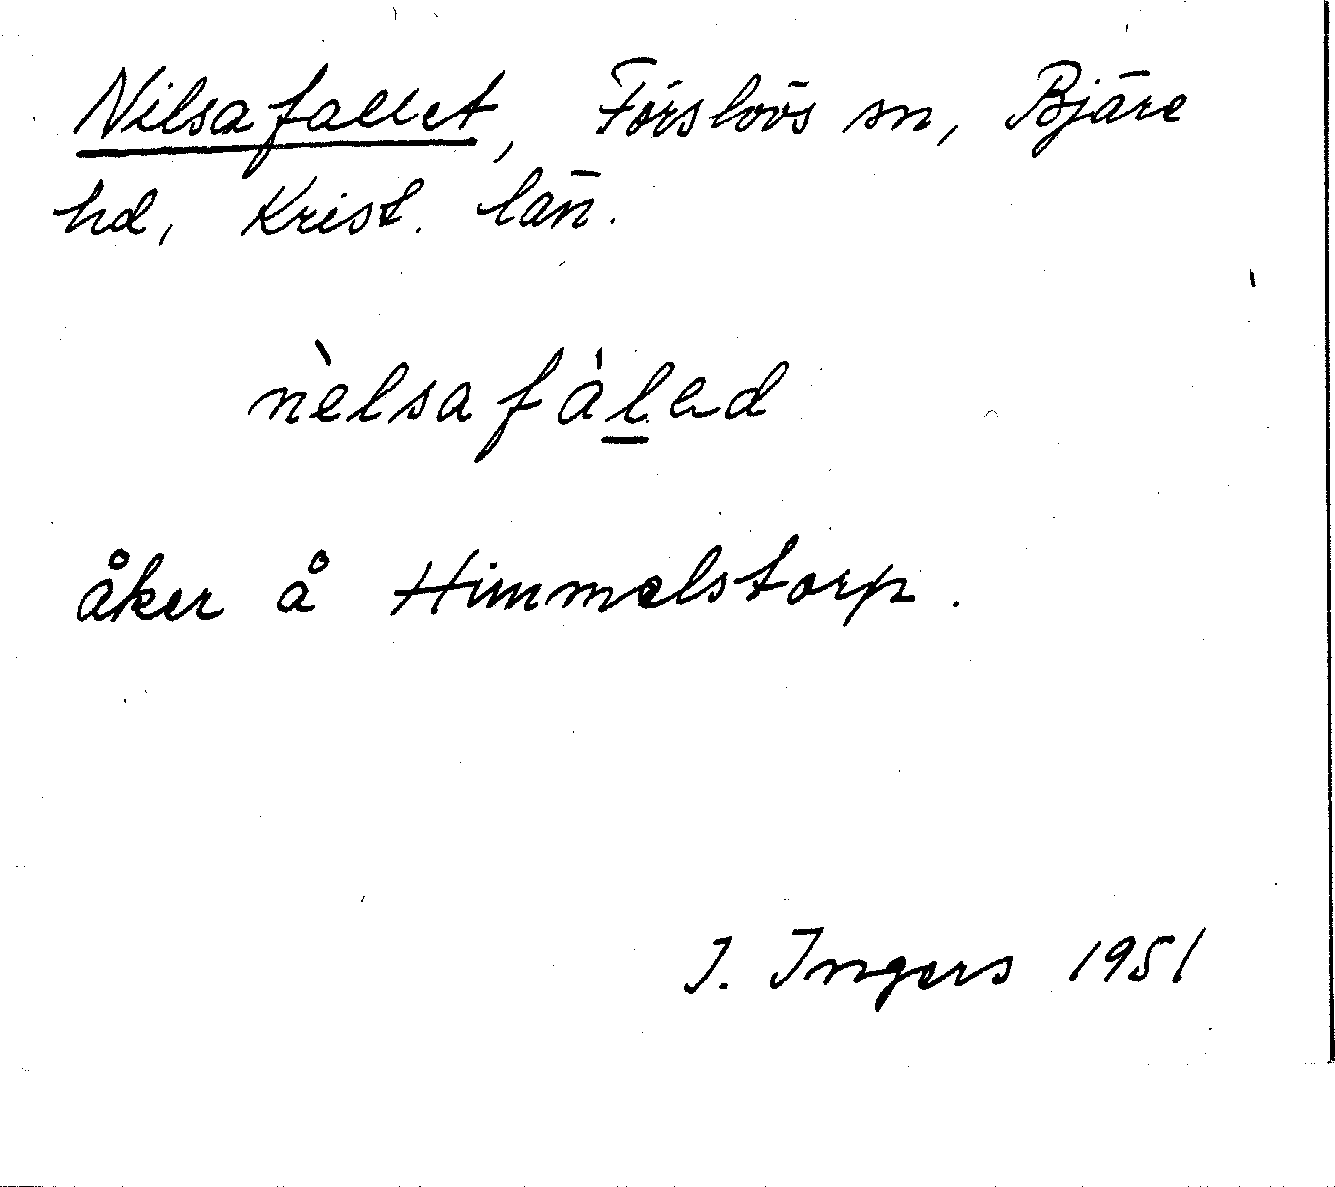 Nilsafallet, Förslövs sn, Bjäre
hd, Krist. län.
nèlsafáləd
åker å Himmelstorp.
I. Ingers 1951